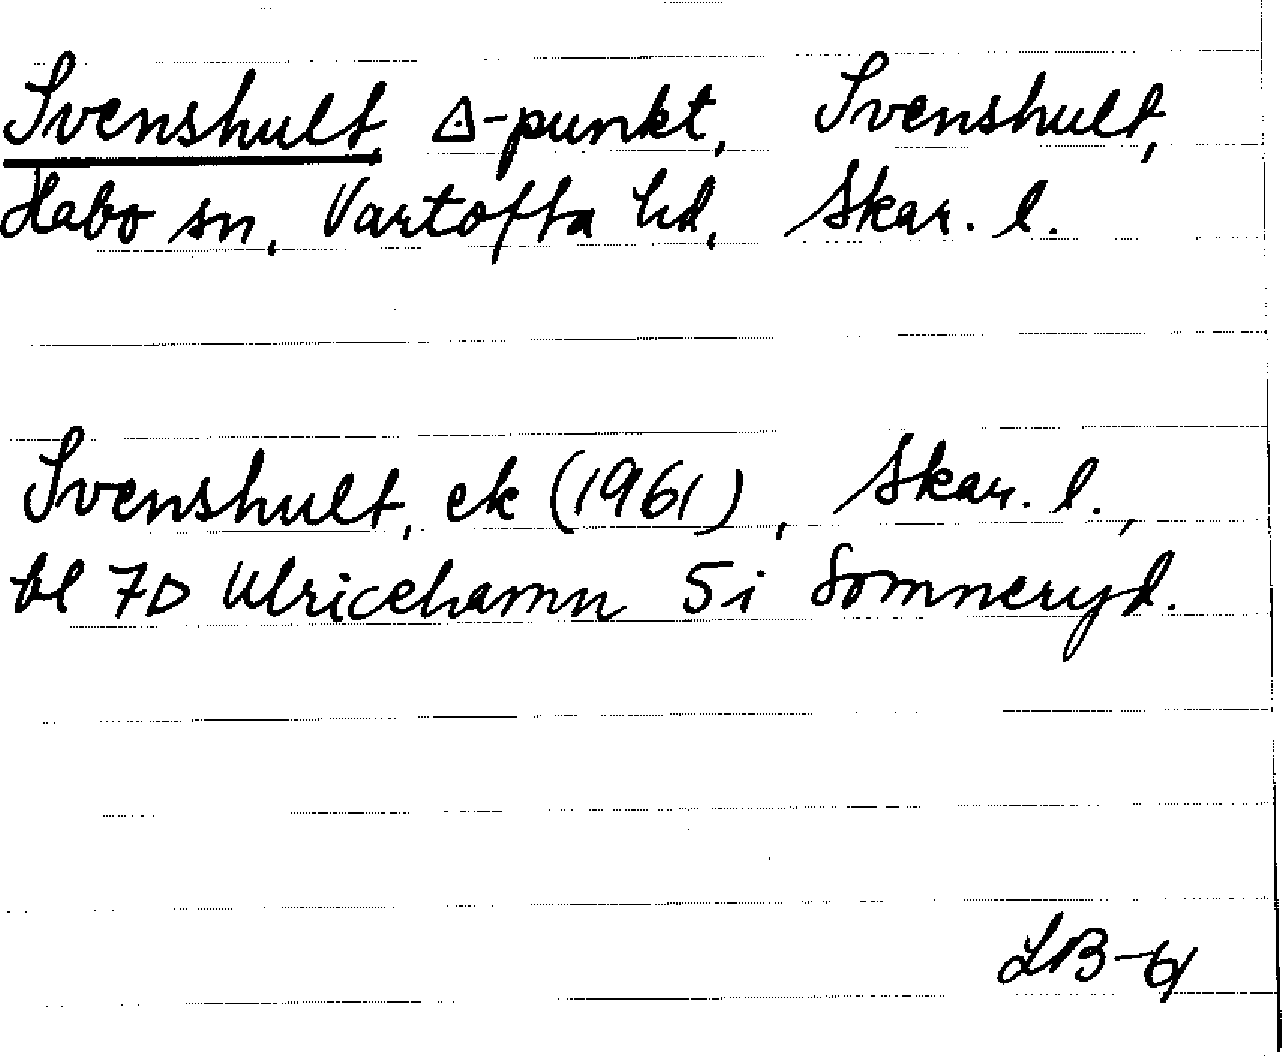 Svenshult, △-punkt, Svenshult,
Habo sn, Vartofta hd, Skar. l.
Svenshult, ek (1961), Skar. l.,
bl 7D Ulricehamn 5i Somneryd.
LB-61